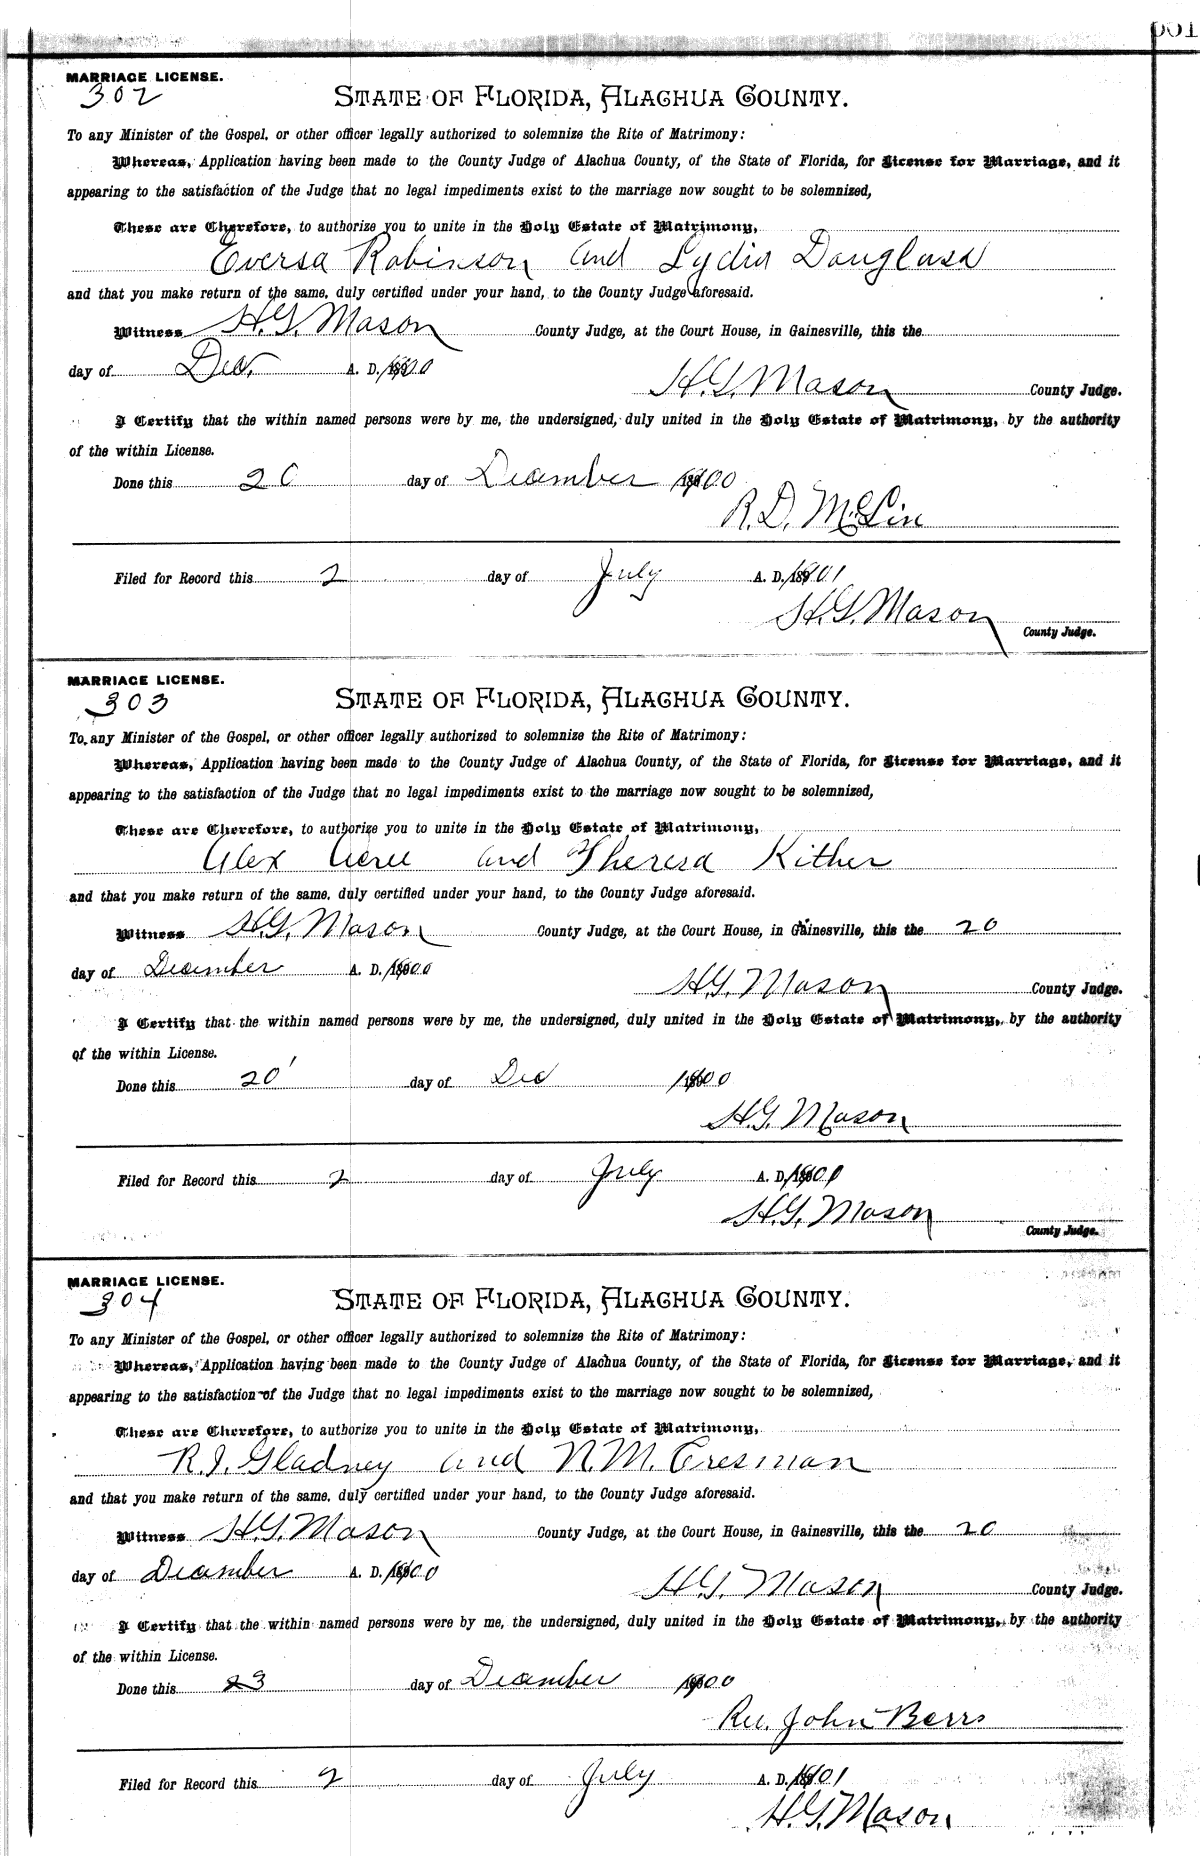 MARRIAGE LICENSE.
302
STATE OF FLORIDA, ALACHUA COUNTY.
To any Minister of the Gospel, or other officer legally authorized to solemnize the Rite of Matrimony:
Whereas, Application having been made to the County Judge of Alachua County, of the State of Florida, for License for Marriage, and it
appearing to the satisfaction of the Judge that no legal impediments exist to the marriage now sought to be solemnized,
These are Therefore, to authorize you to unite in the Holy Estate of Matrimony,
Eversa Robinson and Lydia Douglass
and that you make return of the same, duly certified under your hand, to the County Judge aforesaid.
Witness H.G. Mason County Judge, at the Court House, in Gainesville, this the
day of Dec. A. D. 1900
H.G. Mason County Judge.
I Certify that the within named persons were by me, the undersigned, duly united in the Holy Estate of Matrimony, by the authority
of the within License.
Done this 20 day of December 1900
R.D. McLin
Filed for Record this 2 day of July A. D. 1901
H.G. Mason
County Judge.
MARRIAGE LICENSE.
303
STATE OF FLORIDA, ALACHUA COUNTY.
To any Minister of the Gospel, or other officer legally authorized to solemnize the Rite of Matrimony:
Whereas, Application having been made to the County Judge of Alachua County, of the State of Florida, for License for Marriage, and it
appearing to the satisfaction of the Judge that no legal impediments exist to the marriage now sought to be solemnized,
These are Therefore, to authorize you to unite in the Holy Estate of Matrimony,
Alex and Theresa Kither
and that you make return of the same, duly certified under your hand, to the County Judge aforesaid.
Witness H.G. Mason County Judge, at the Court House, in Gainesville, this the 20
day of December A. D. 1900
H.G. Mason County Judge.
I Certify that the within named persons were by me, the undersigned, duly united in the Holy Estate of Matrimony, by the authority
of the within License.
Done this 20 day of Dec 1900
H.G. Mason
Filed for Record this 2 day of July A. D. 1901
H.G. Mason
County Judge.
MARRIAGE LICENSE.
304
STATE OF FLORIDA, ALACHUA COUNTY.
To any Minister of the Gospel, or other officer legally authorized to solemnize the Rite of Matrimony:
Whereas, Application having been made to the County Judge of Alachua County, of the State of Florida, for License for Marriage, and it
appearing to the satisfaction of the Judge that no legal impediments exist to the marriage now sought to be solemnized,
These are Therefore, to authorize you to unite in the Holy Estate of Matrimony,
R.J. Gladney and N.M. Cresman
and that you make return of the same, duly certified under your hand, to the County Judge aforesaid.
Witness H.G. Mason County Judge, at the Court House, in Gainesville, this the 20
day of December A. D. 1900
H.G. Mason County Judge.
I Certify that the within named persons were by me, the undersigned, duly united in the Holy Estate of Matrimony, by the authority
of the within License.
Done this 23 day of December 1900
Rev. John Berrs
Filed for Record this 2 day of July A. D. 1901
H.G. Mason